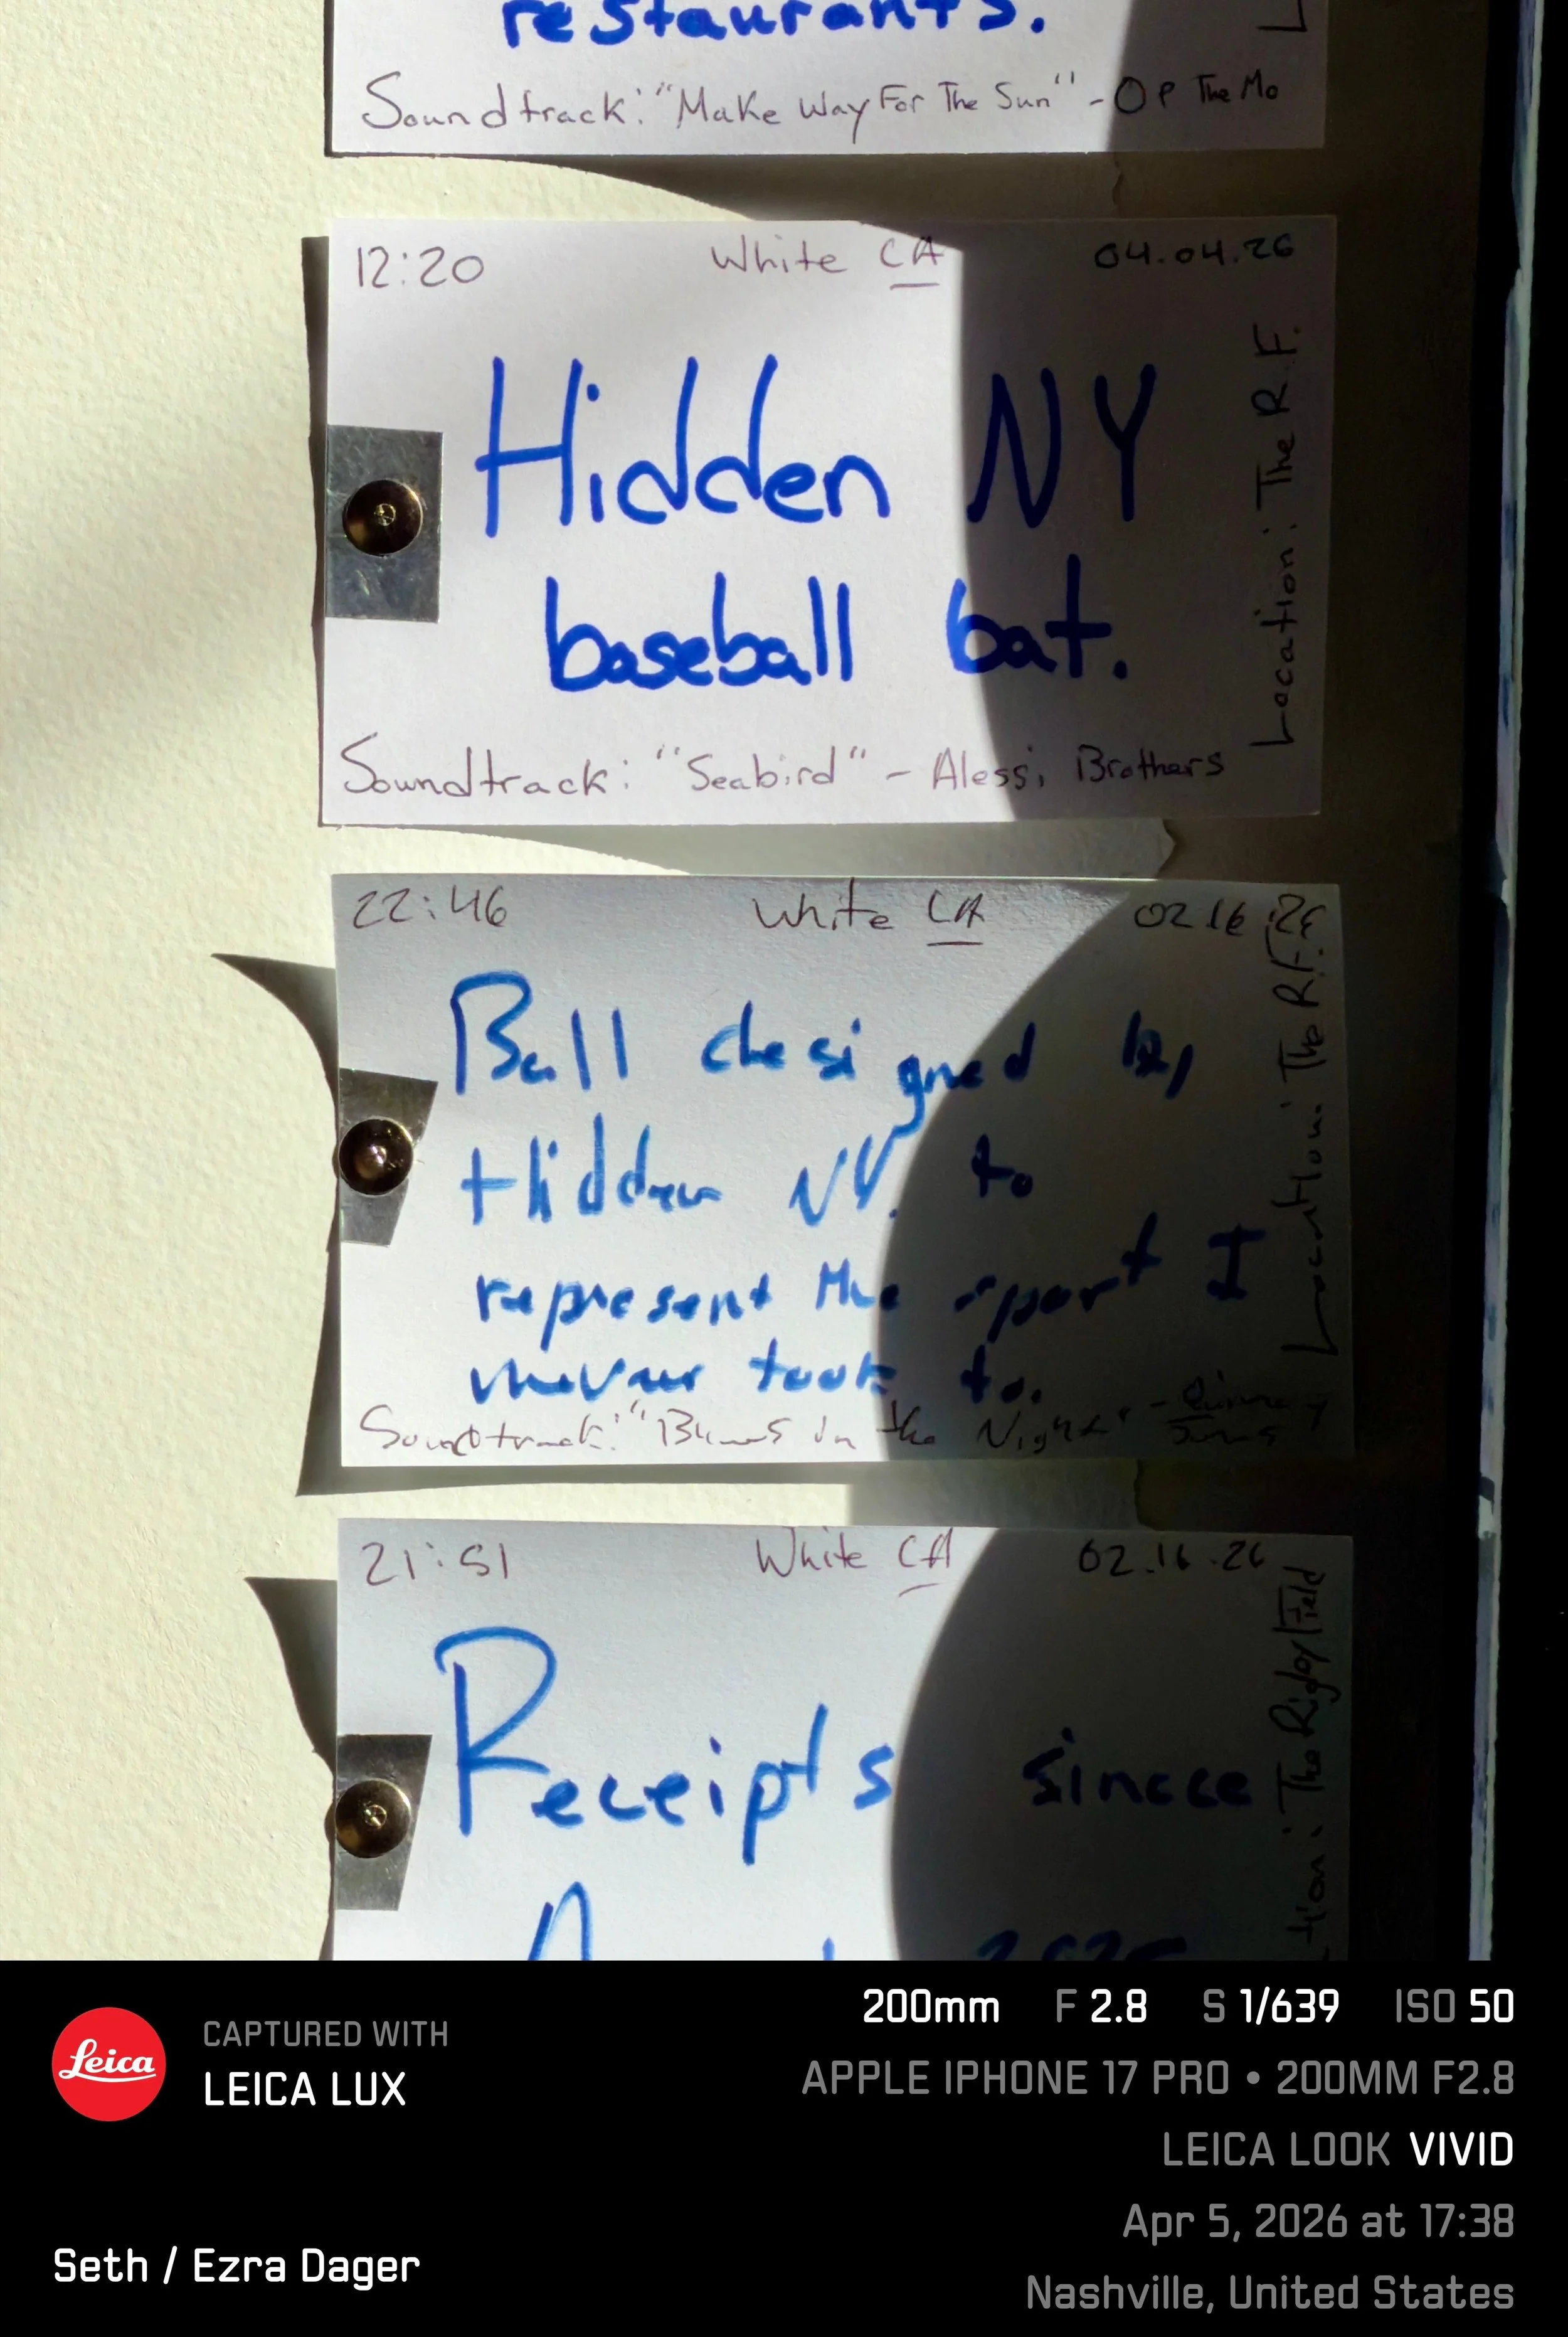 restaurants.
Soundtrack: "Make Way For The Sun" - Op The Mo
12:20 White CA 04.04.26
Hidden NY
baseball bat.
Location: The R.F.
Soundtrack: "Seabird" - Alessi Brothers
22:46 White CA 02.16.26
Ball designed by
Hidden NY. to
represent the sport I
never took to.
Location: The R.F.
Soundtrack: in the Night" -
21:51 White CA 02.16.26
Receipts since
2025
The Rigby Field
Leica
CAPTURED WITH
LEICA LUX
200mm F 2.8 S 1/639 ISO 50
APPLE IPHONE 17 PRO • 200MM F2.8
LEICA LOOK VIVID
Apr 5, 2026 at 17:38
Seth / Ezra Dager
Nashville, United States